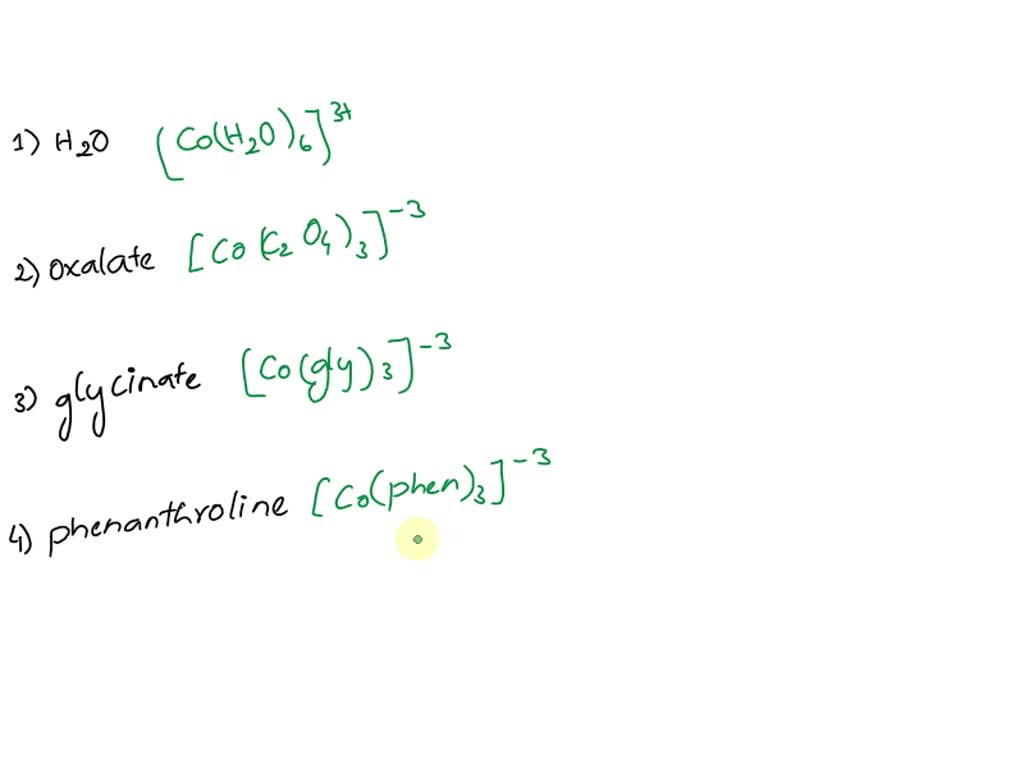 1) H2O [Co(H2O)6]3+
2) oxalate [Co(C2O4)3]-3
3) glycinate [Co(gly)3]-3
4) phenanthroline [Co(phen)3]-3